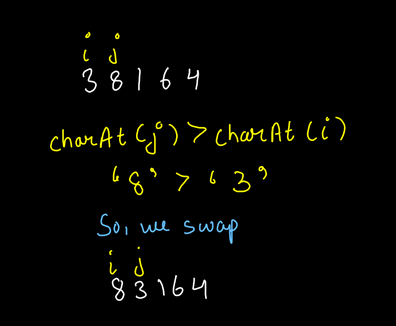 i j
3 8 1 6 4
charAt(j) > charAt(i)
'8' > '3'
So, we swap
i j
8 3 1 6 4